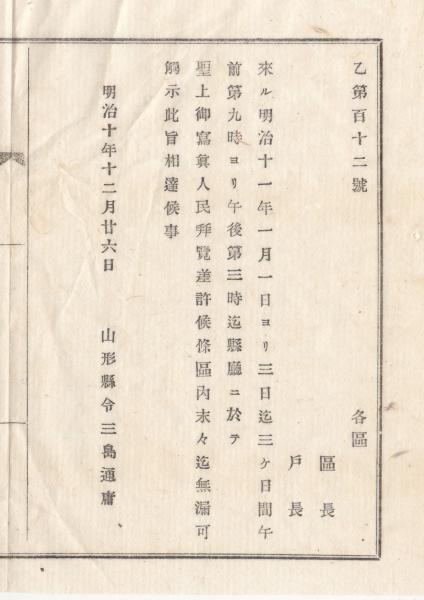 乙第百十二號
各區
區長
戶長
來ル明治十一年一月一日ヨリ三日迄三ケ日間午
前第九時ヨリ午後第三時迄縣廳ニ於テ
聖上御寫眞人民拜覽差許候條區內末々迄無漏可
觸示此旨相達候事
明治十年十二月廿六日
山形縣令三島通庸